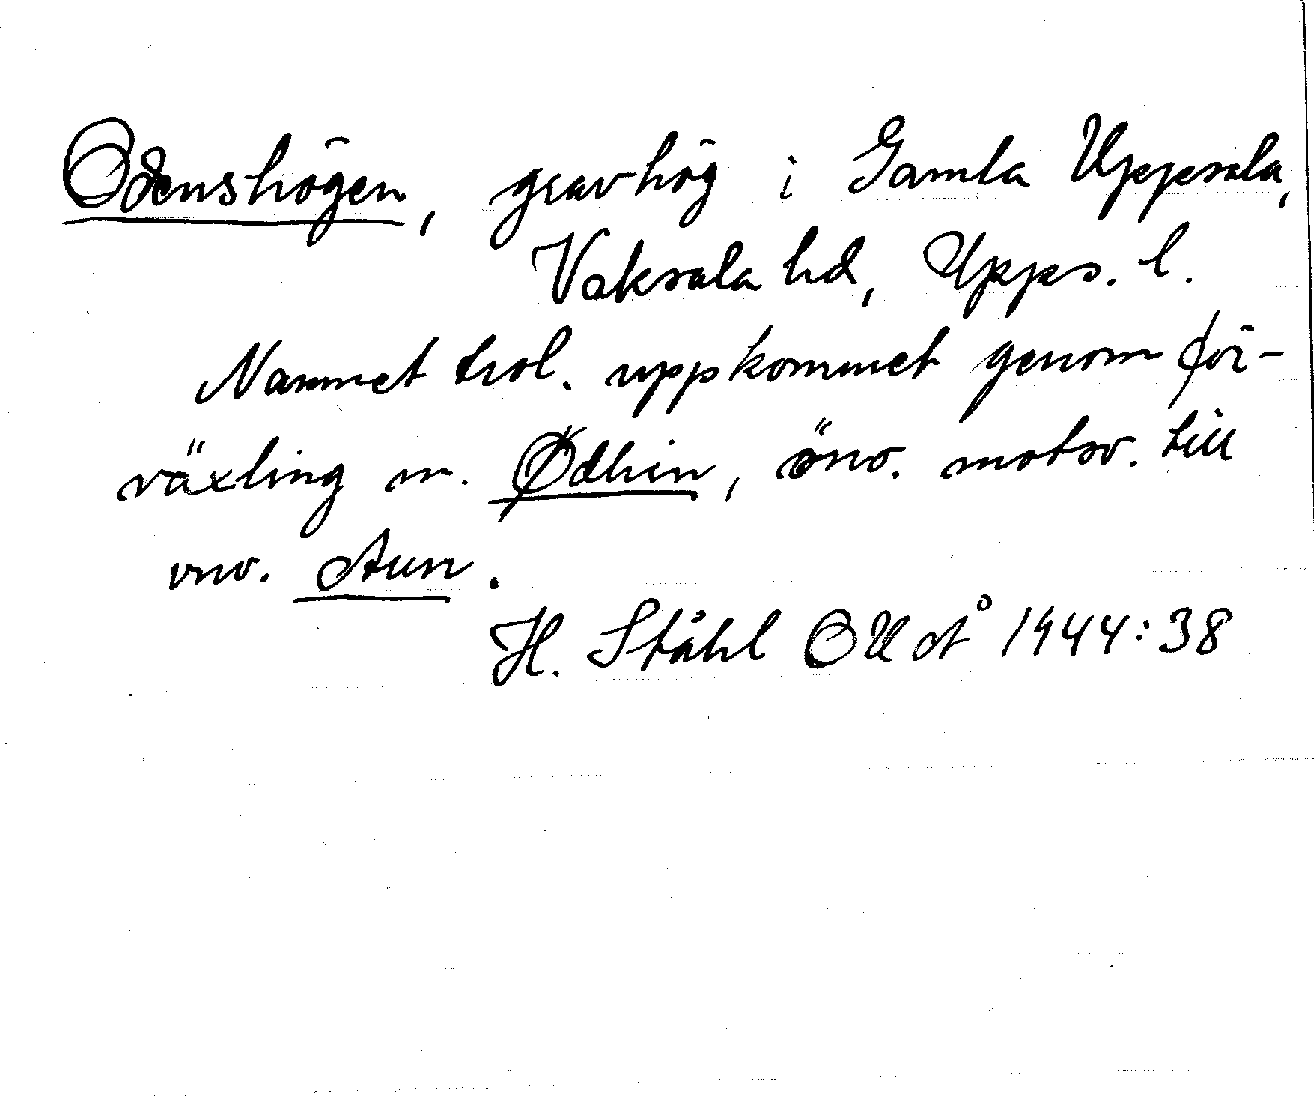 Odenshögen, gravhög i Gamla Uppsala,
Vaksala hd, Upps. l.
Namnet trol. uppkommet genom för-
växling m. Ødhin, önv. motsv. till
vnv. Aun.
H. Ståhl OUÅ 1944:38